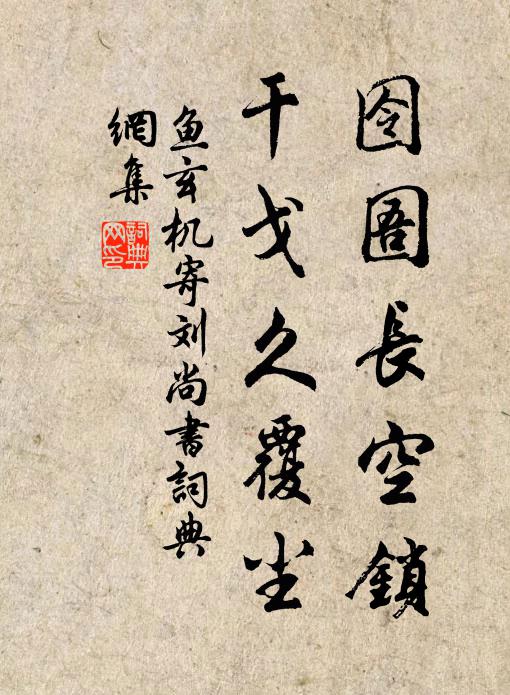 囹圄長空鎖
干戈久覆尘
鱼玄机寄刘尚書詞典
網集
詞典网印